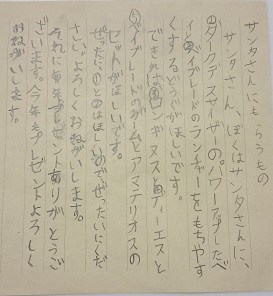 サンタにもらうもの
サンタさん、ぼくはサンタさんに、
①ダークデスサイザーのパワーアップしたベ
イと②ベイブレードのランチャーをもちやす
くするどうぐがほしいです。
できれば③ロンギヌスと④ディーエスと
⑤ベイブレードのゲームとアマテリオスの
セットがほしいです。
ぜったい①と②はほしいのでぜったいにくだ
さい。よろしくおねがいします。
それに毎年プレゼントありがとうご
ざいます。今年もプレゼントよろしく
おねがいします。